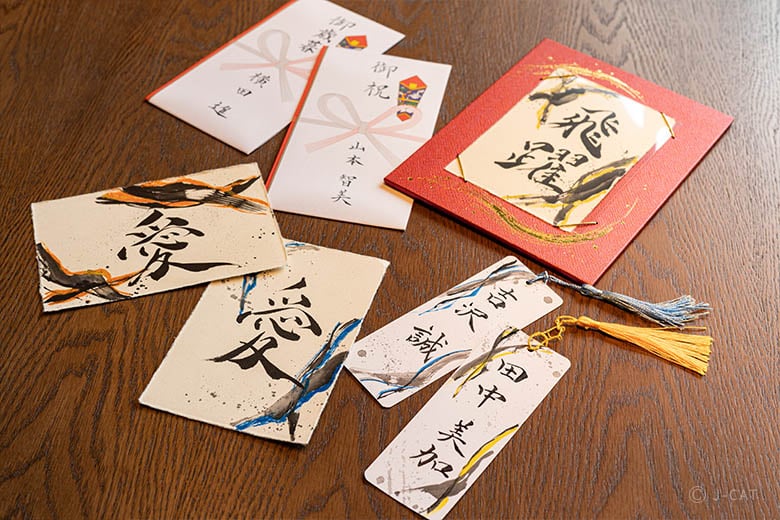 御歳暮
横田 遥
御祝
山本智美
飛躍
愛
愛
吉沢
誠
田中
美加
© J-CAT